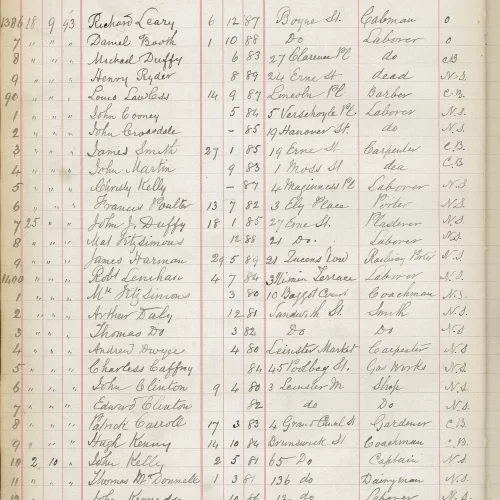 1386 18 9 93 Richard Leary 6 12 87 Boyne St. Cabman 0
7 " " " Daniel Booth 1 10 88 Do Laborer 0
8 " " " Michael Duffy 6 83 27 Clarence Pl do C.B
9 " " " Henry Ryder 8 89 24 Erne St dead N.S.
90 " " " Louis Lawless 14 9 87 Lincoln Pl Barber C.B.
1 " " " John Cooney 5 84 5 Verschoyle Pl. Laborer N.S.
2 " " " John Croasdale - 85 19 Hanover St. do N.S.
3 " " " James Smith 27 1 85 19 Erne St. Carpenter C.B.
4 " " " John Martin 9 83 1 Moss St dea C.B
5 " " " Christy Kelly - 87 4 Maginness Pl Laborer N.S.
6 " " " Francis Poulter 13 7 82 3 Ely Place Porter N.S.
7 25 " " John J. Duffy 18 1 85 27 Erne St. Plasterer N.S.
8 " " " Mat Fitzsimons 12 88 21 Do. Laborer N.S.
9 " " " James Harman 29 5 89 21 Queens Row Railway Porter N.S.
1400 " " " Robt Lenihan 4 7 84 3 Terrace Laborer N.S.
1 " " " Mk Fitzsimons 3 80 10 Baggot Court Coachman N.S.
2 " " " Arthur Daly 12 81 Sandwith St. Smith N.S.
3 " " " Thomas Do 3 82 Do Do N.S.
4 " " " Andrew Dwyer 4 80 Leinster Market Carpenter N.S.
5 " " " Charles Caffrey 84 45 Gas Works N.S.
6 " " " John Clinton 9 4 80 3 Leinster M Shop N.S.
7 " " " Edward Clinton 82 do Do N.S.
8 " " " Patrick Carroll 17 3 83 4 Grand Canal St Gardener C.B
9 " " " Hugh Kenny 14 10 84 Brunswick St Coachman C.B.
10 2 10 " John Kelly 2 5 81 65 Do Captain N.S.
11 " " " Thomas McDonnell 1 3 81 136 do Dairyman N.S.
John 10 86 12 do Laborer N.S.